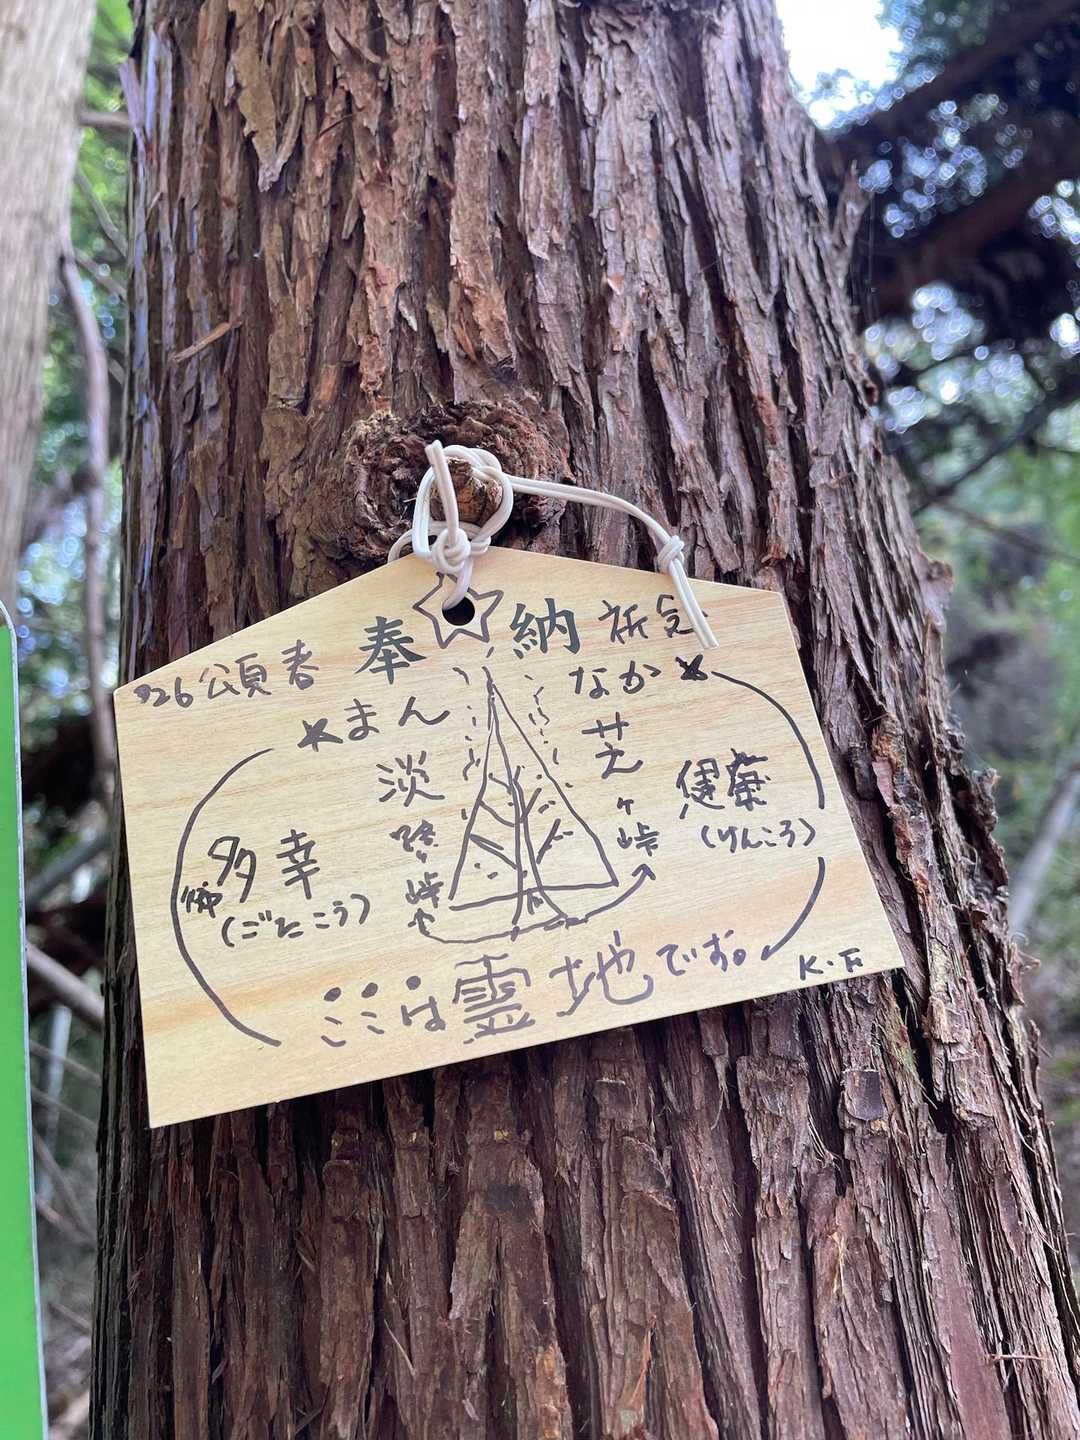 '26 頌春 奉納 祈念
★まん
淡路峠や
なか★
芝ヶ峠
御多幸
(ごたこう)
(けんころ)
ここは霊地です。
K.F